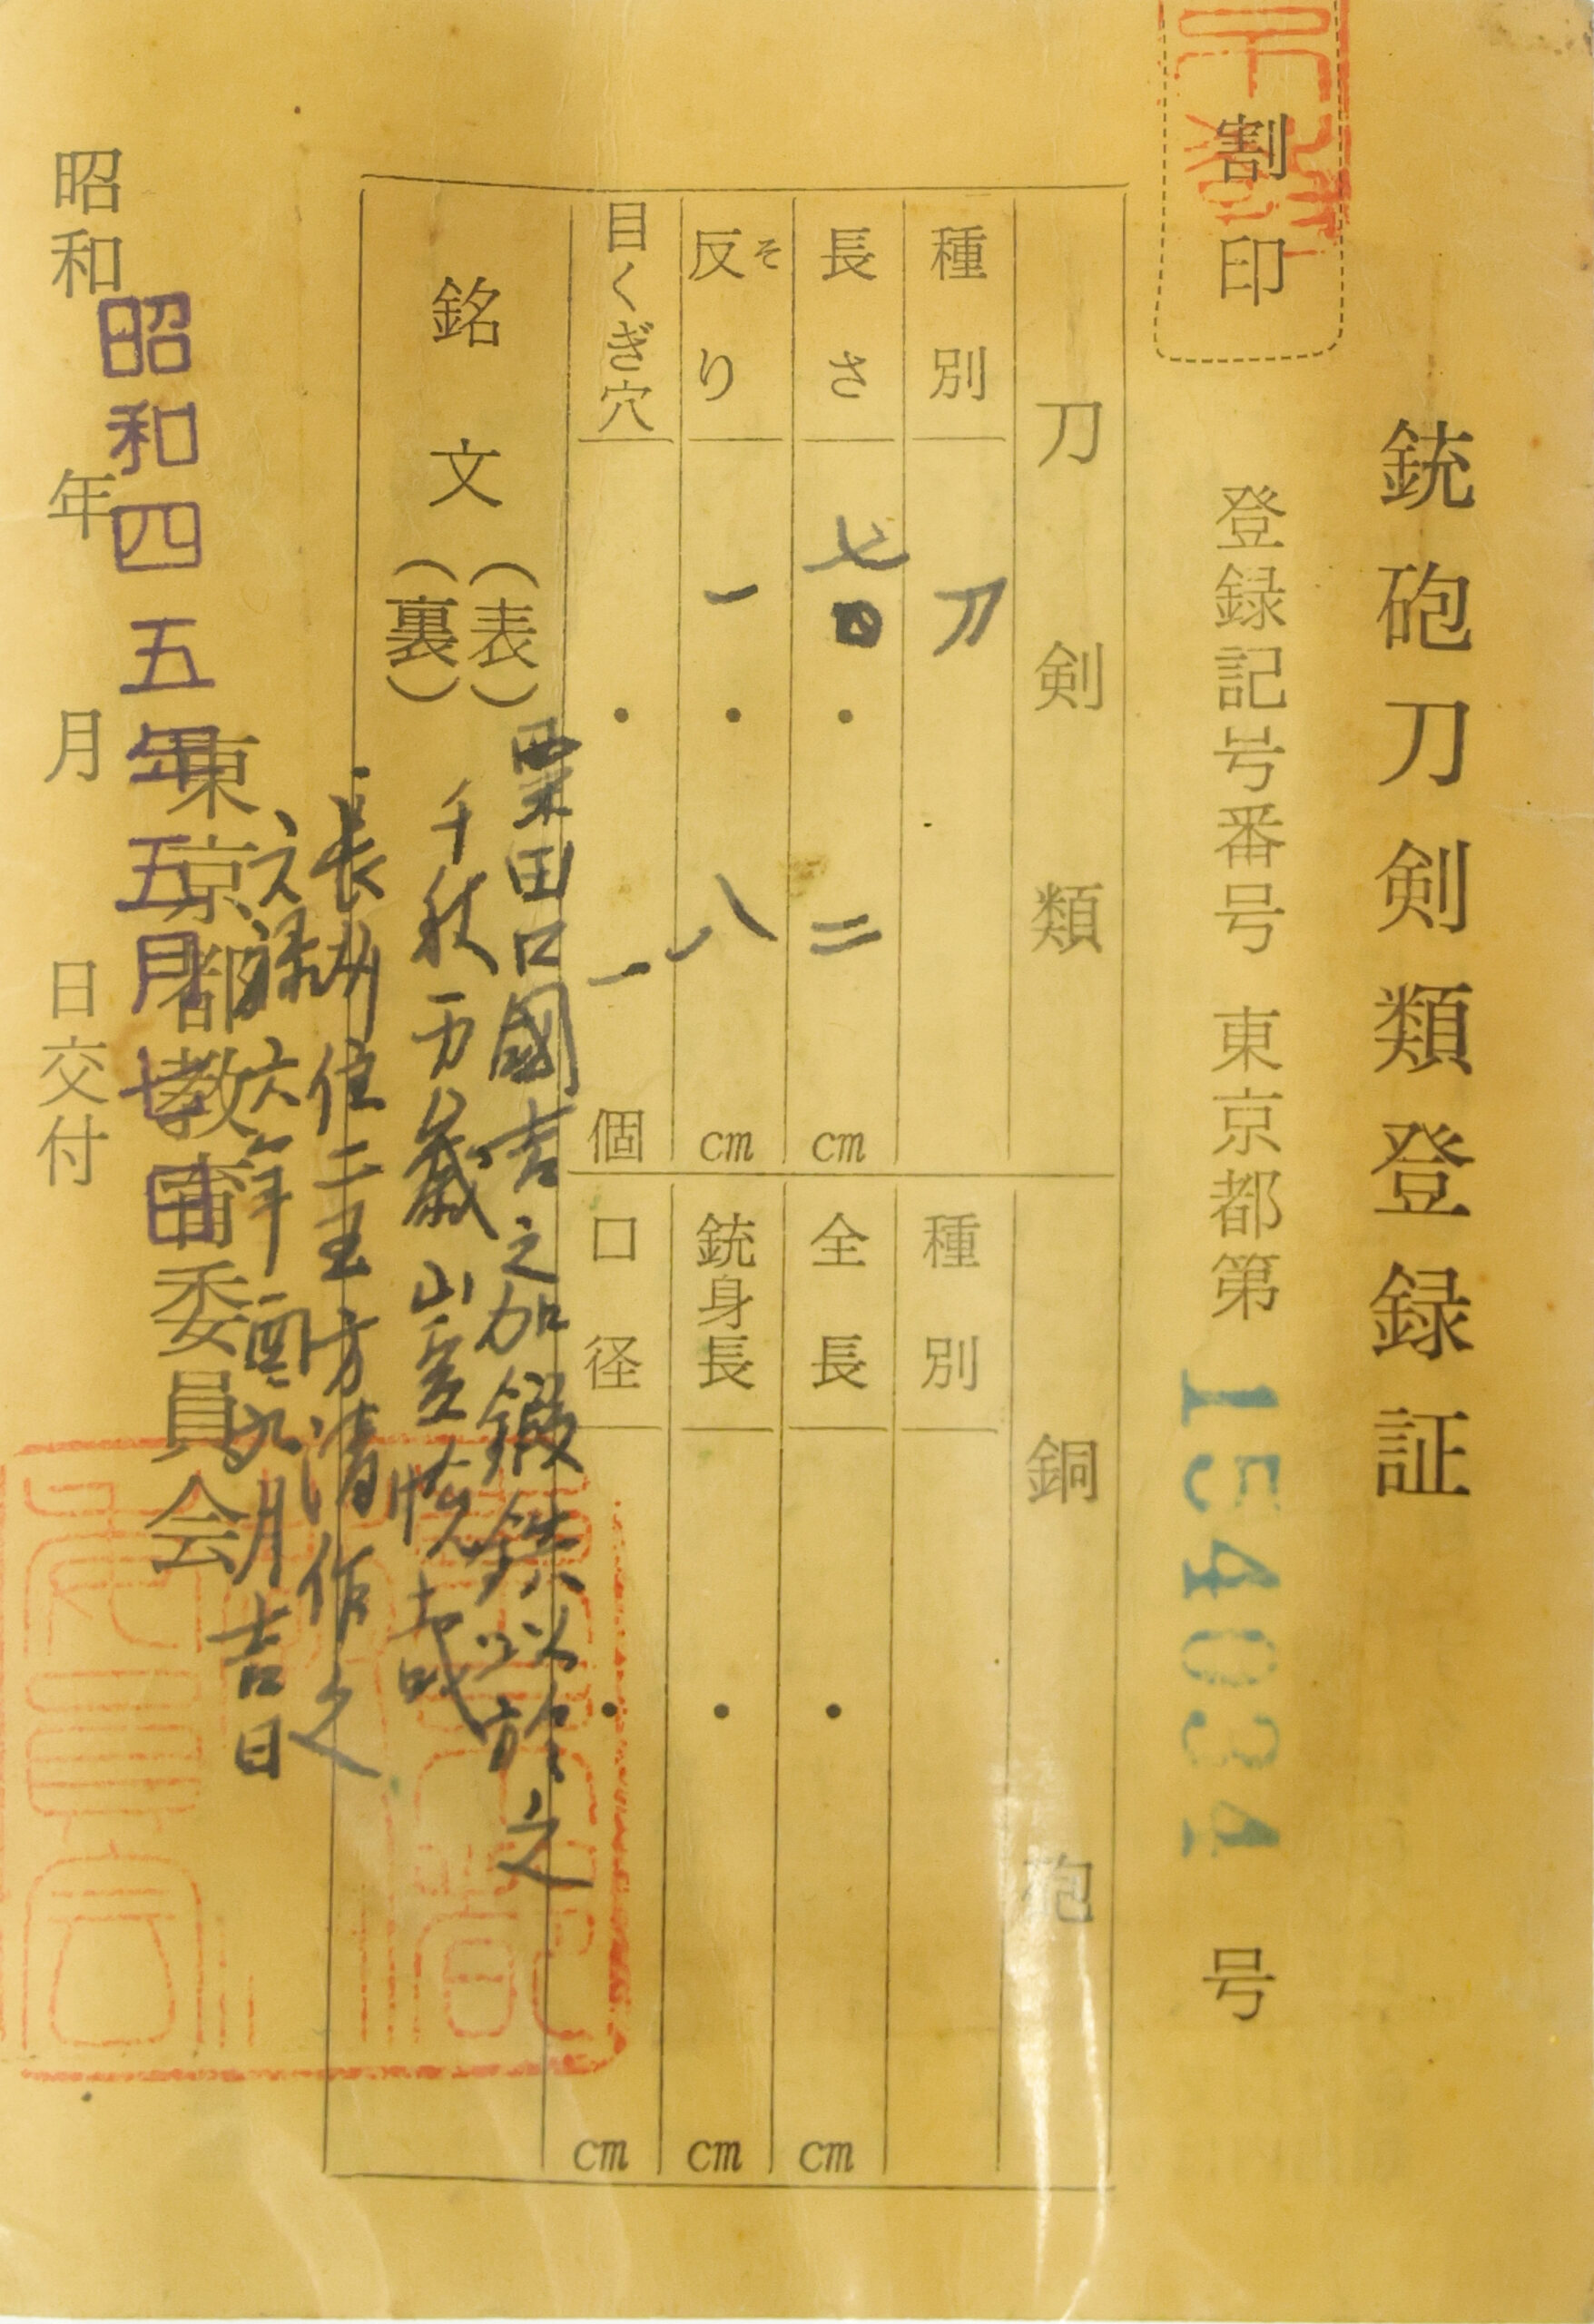 銃砲刀剣類登録証
割印
登録記号番号 東京都第 154034 号
刀剣類
銅砲
種別 刀
種別
長さ 七〇・二 cm
全長 ・ cm
反り そ 一・八 cm
銃身長 ・ cm
目くぎ穴 ・一 個
口径 ・ cm
銘文 (表) (裏)
粟田口國吉之加鍛鉄以於之
千秋万歳山
長州住二王方清作之
文禄六年 九月吉日
東京都教育委員会
昭和四五年五月七日
昭和 年 月 日交付